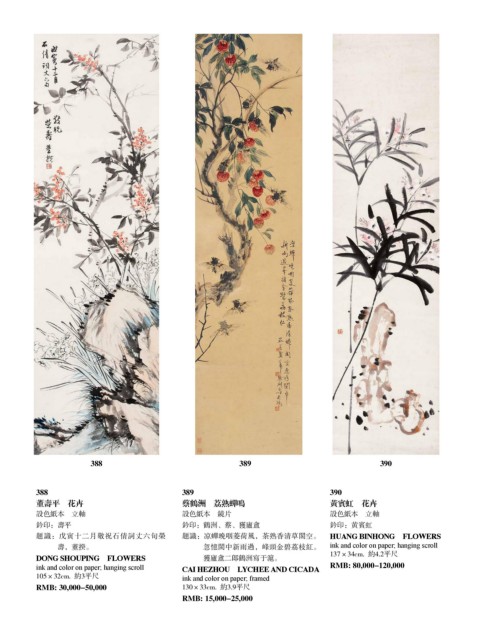 388
389
390
388
董壽平　花卉
設色紙本　立軸
鈐印：壽平
題識：戊寅十二月敬祝石倩詞丈六旬榮
壽，董揆。
DONG SHOUPING　FLOWERS
ink and color on paper; hanging scroll
105 × 32cm.　約3平尺
RMB: 30,000–50,000
389
蔡鶴洲　荔熟蟬鳴
設色紙本　鏡片
鈐印：鶴洲、蔡、獲廬盦
題識：凉蟬晚咽菱荷風，茶熟香清草閣空。
忽憶閩中新雨過，峰頭金碧荔枝紅。
獲廬盦二郎鶴洲寫于滬。
CAI HEZHOU　LYCHEE AND CICADA
ink and color on paper; framed
130 × 33cm.　約3.9平尺
RMB: 15,000–25,000
390
黃賓虹　花卉
設色紙本　立軸
鈐印：黃賓虹
HUANG BINHONG　FLOWERS
ink and color on paper; hanging scroll
137 × 34cm.　約4.2平尺
RMB: 80,000–120,000